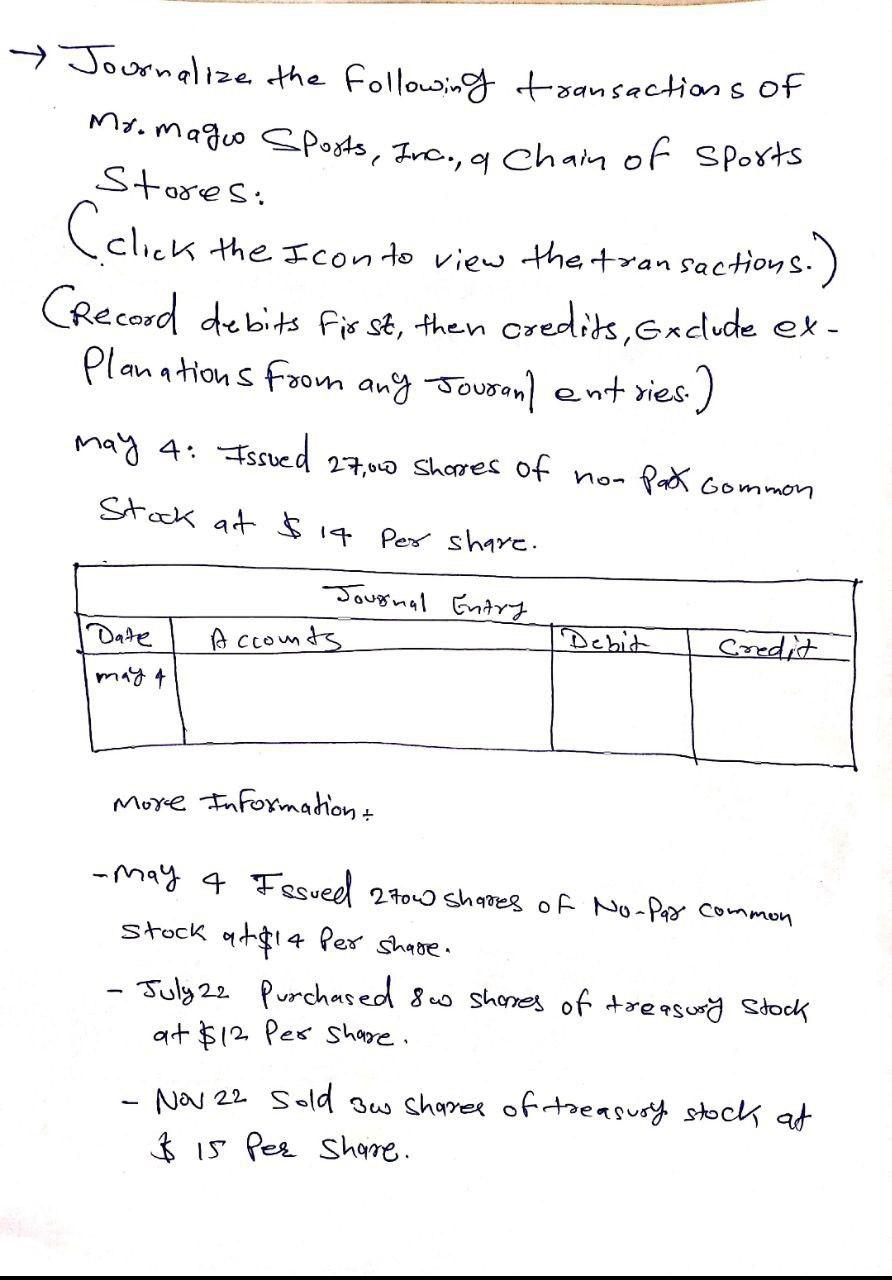 → Journalize the following transactions of
Mr. Magoo Sports, Inc., a Chain of Sports
Stores:
(click the Icon to view the transactions.)
(Record debits first, then credits, Exclude ex-
planations from any Jouranl entries.)
May 4: Issued 27,000 shares of no-par Common
Stock at $ 14 Per share.
Journal Entry
Date Accounts Debit Credit
may 4
More Information:
- May 4 Issued 27000 shares of No-Par common
stock at $14 Per share.
- July 22 Purchased 800 shares of treasury stock
at $12 Per share.
- Nov 22 Sold 300 shares of treasury stock at
$ 15 Per Share.